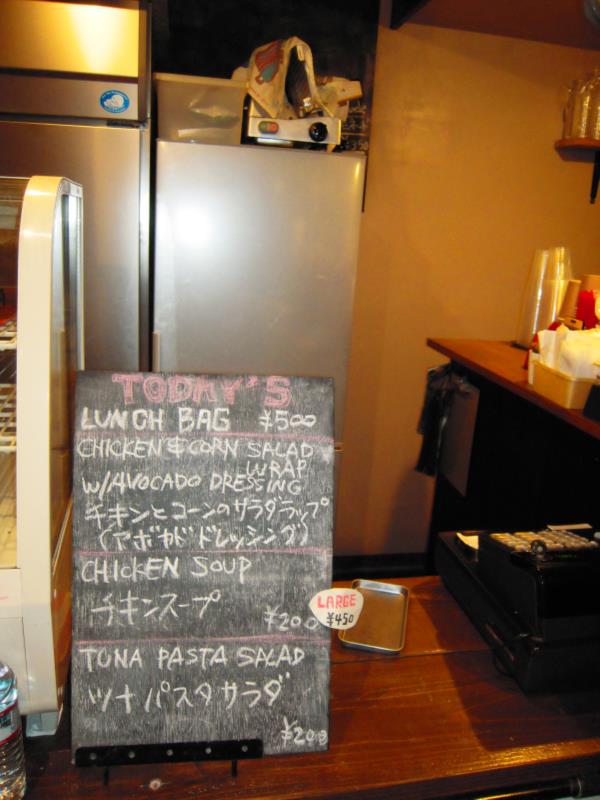 TODAY'S
LUNCH BAG ¥500
CHICKEN & CORN SALAD
WRAP
W/AVOCADO DRESSING
チキンとコーンのサラダラップ
(アボカドドレッシング)
CHICKEN SOUP
チキンスープ
¥200
LARGE
¥450
TUNA PASTA SALAD
ツナパスタサラダ
¥200